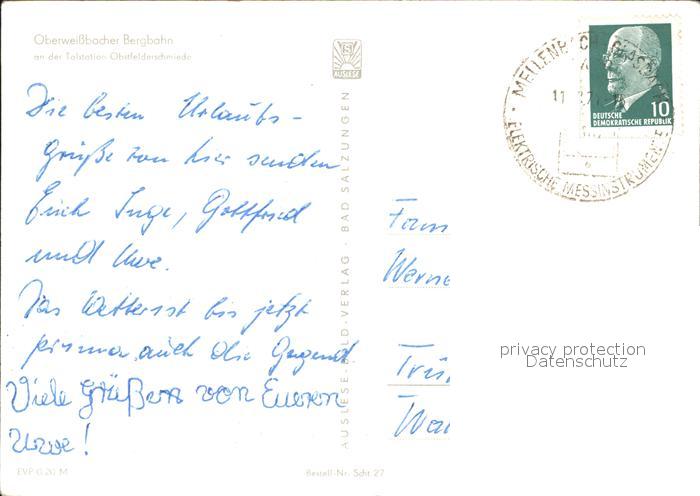 Oberweißbacher Bergbahn
an der Talstation Obstfelderschmiede
AUSLESE
Die besten Urlaubs-
grüße von hier senden
Euch Inge, Gottfried
und Uwe.
Das Wetter ist bis jetzt
prima, auch die Gegend
Viele Grüßen von Eueren
Uwe!
EVP 0,20 M
AUSLESE-BILD-VERLAG · BAD SALZUNGEN
Bestell-Nr. Scht 27
MELLENBACH-GLASBACH
ELEKTRISCHE MESSINSTRUMENTE
10
DEUTSCHE
DEMOKRATISCHE REPUBLIK
Fam
Werne
privacy protection
Datenschutz